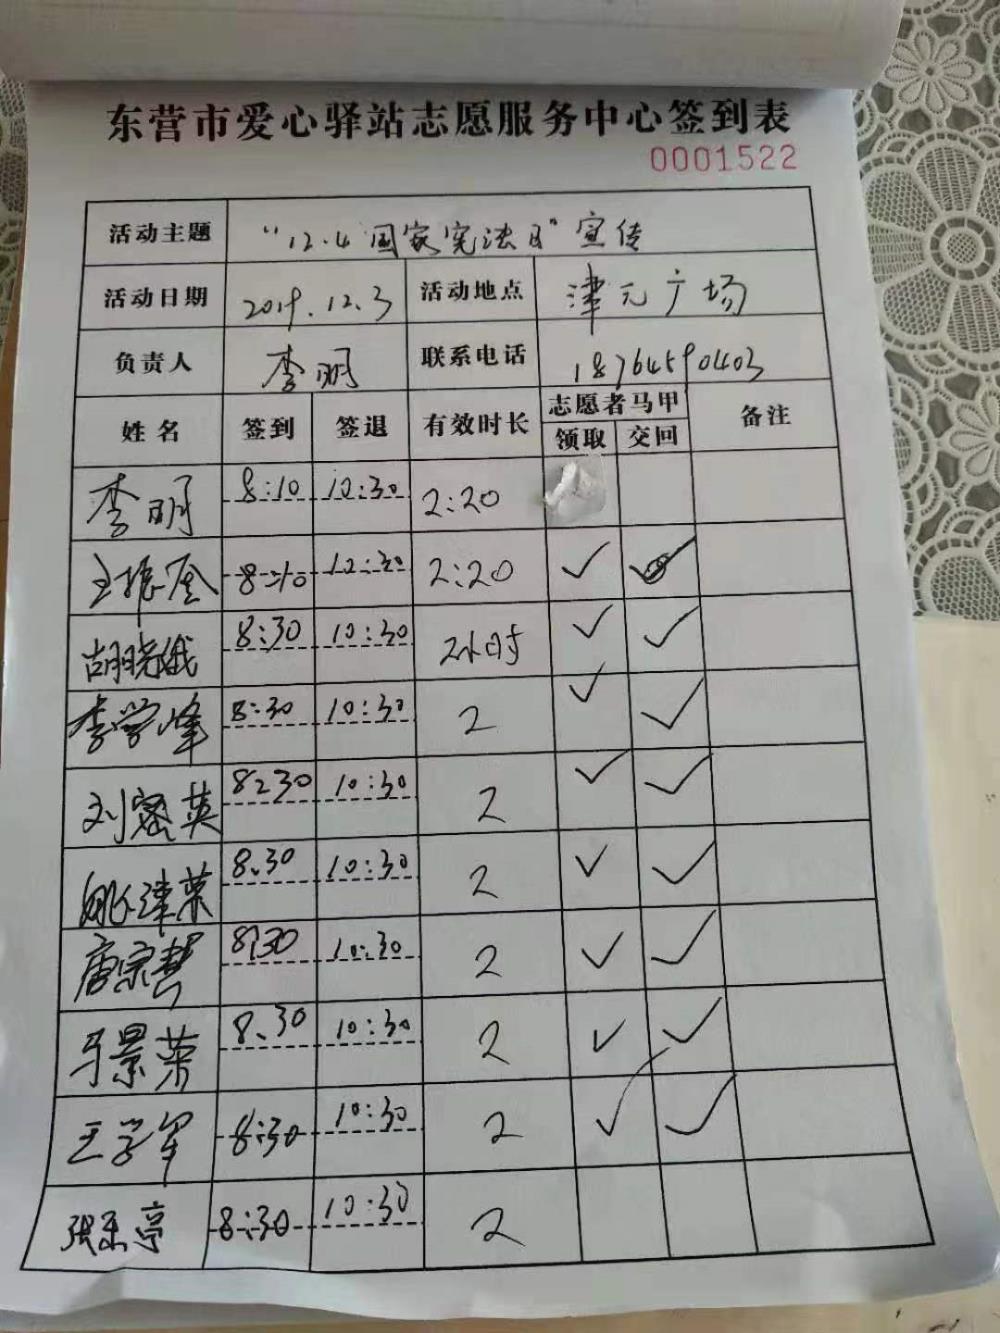 东营市爱心驿站志愿服务中心签到表
0001522
活动主题 "12.4国家宪法日"宣传
活动日期 2019.12.3 活动地点 津元广场
负责人 李明 联系电话 18764590403
姓名 签到 签退 有效时长 志愿者马甲 备注
领取 交回
李明 8:10 10:30 2:20
王振 8:10 12:30 2:20 ✓ ✓
胡晓娥 8:30 10:30 2小时 ✓ ✓
李学峰 8:30 10:30 2 ✓ ✓
刘 英 8:30 10:30 2 ✓ ✓
姚泽荣 8.30 10:30 2 ✓ ✓
唐宗慧 8:30 10:30 2 ✓ ✓
马景荣 8.30 10:30 2 ✓ ✓
王学军 8:30 10:30 2 ✓ ✓
张乐亭 8:30 10:30 2